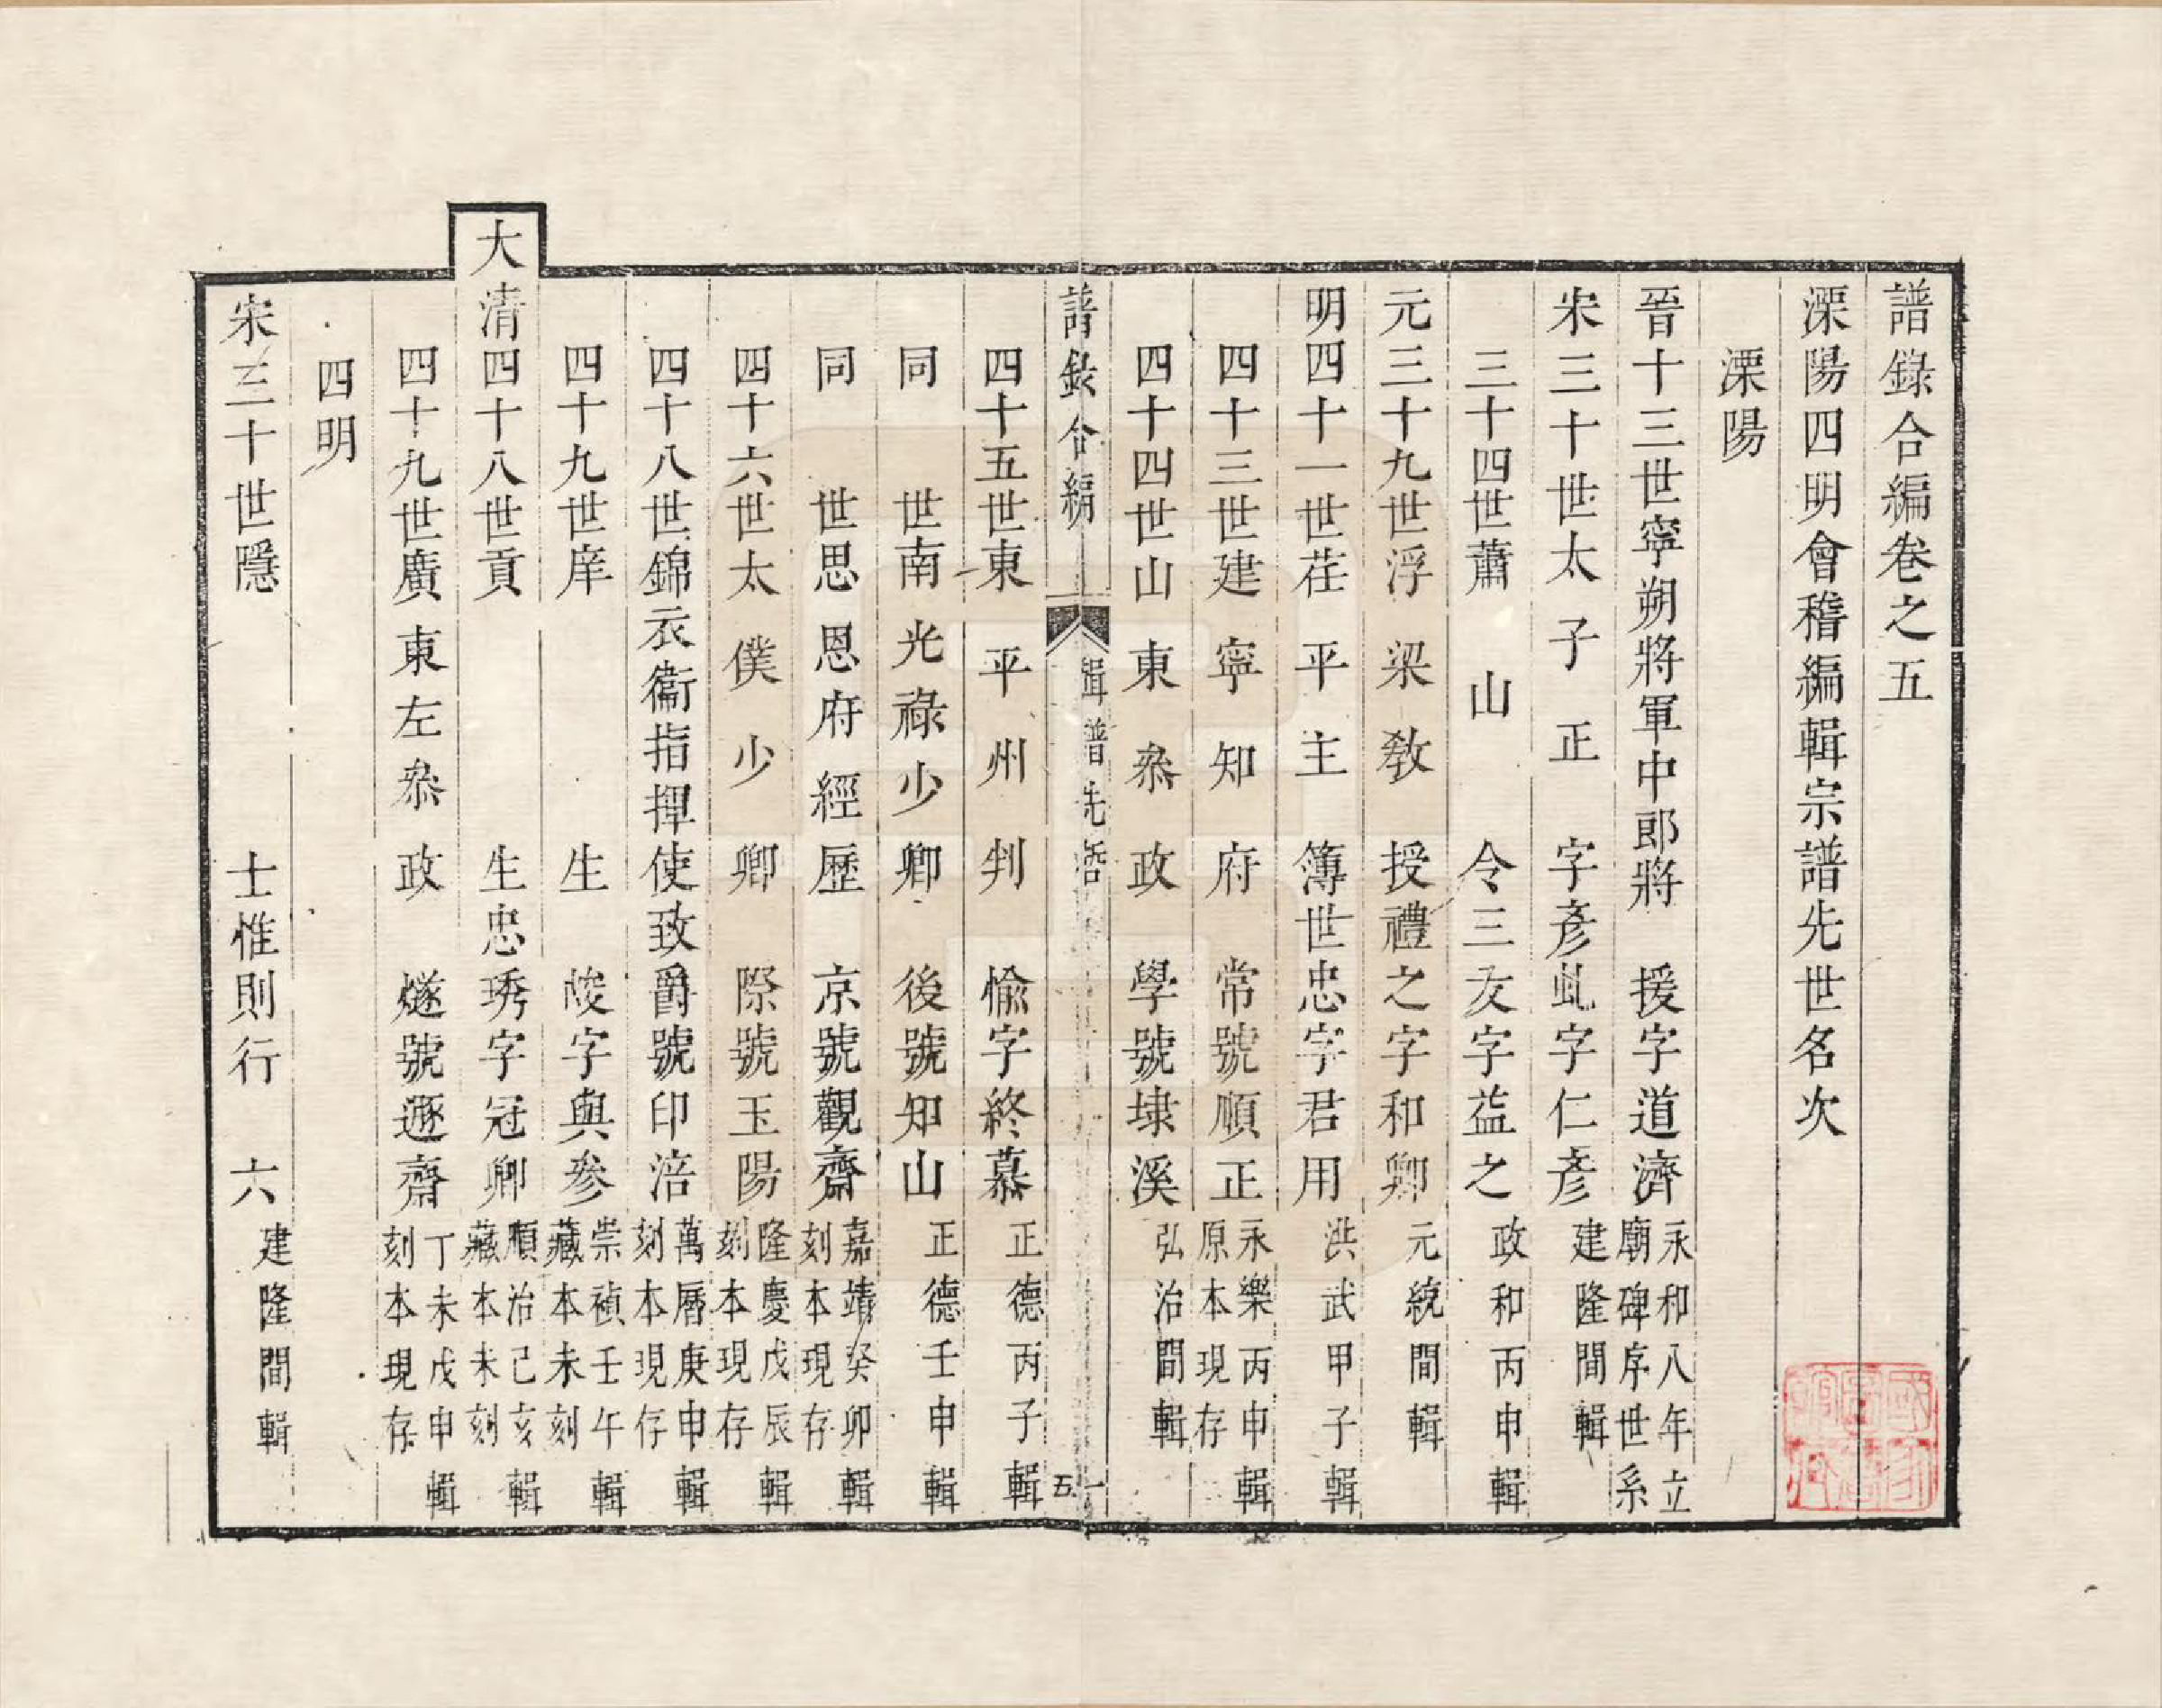 譜錄合編卷之五
溧陽四明會稽編輯宗譜先世名次
溧陽
晉十三世寧朔將軍中郎將 援字道濟 永和八年立廟碑序世系
宋三十世太子正字彥虬字仁彥 建隆間輯
三十四世蕭山令三友字益之 政和丙申輯
元三十九世浮梁教授禮之字和卿 元統間輯
明四十一世茌平主簿世忠字君用 洪武甲子輯
四十三世建寧知府 常號順正 永樂丙申輯原本現存
四十四世山東叅政 學號埭溪 弘治間輯
譜錄合編 輯譜先 五 一
四十五世東平州判 愉字終慕 正德丙子輯
同 世南光祿少卿 後號知山 正德壬申輯
同 世思恩府經歷 京號觀齋 嘉靖癸卯輯刻本現存
四十六世太僕少卿 際號玉陽 隆慶戊辰輯刻本現存
四十八世錦衣衞指揮使致爵號印涪 萬曆庚申輯刻本現存
四十九世庠生 峻字與參 崇禎壬午輯藏本未刻
大清四十八世貢生忠琇字冠卿 順治己亥輯藏本未刻
四十九世廣東左叅政 燧號遯齋 丁未戊申輯刻本現存
四明
宋三十世隱士惟則行六 建隆間輯